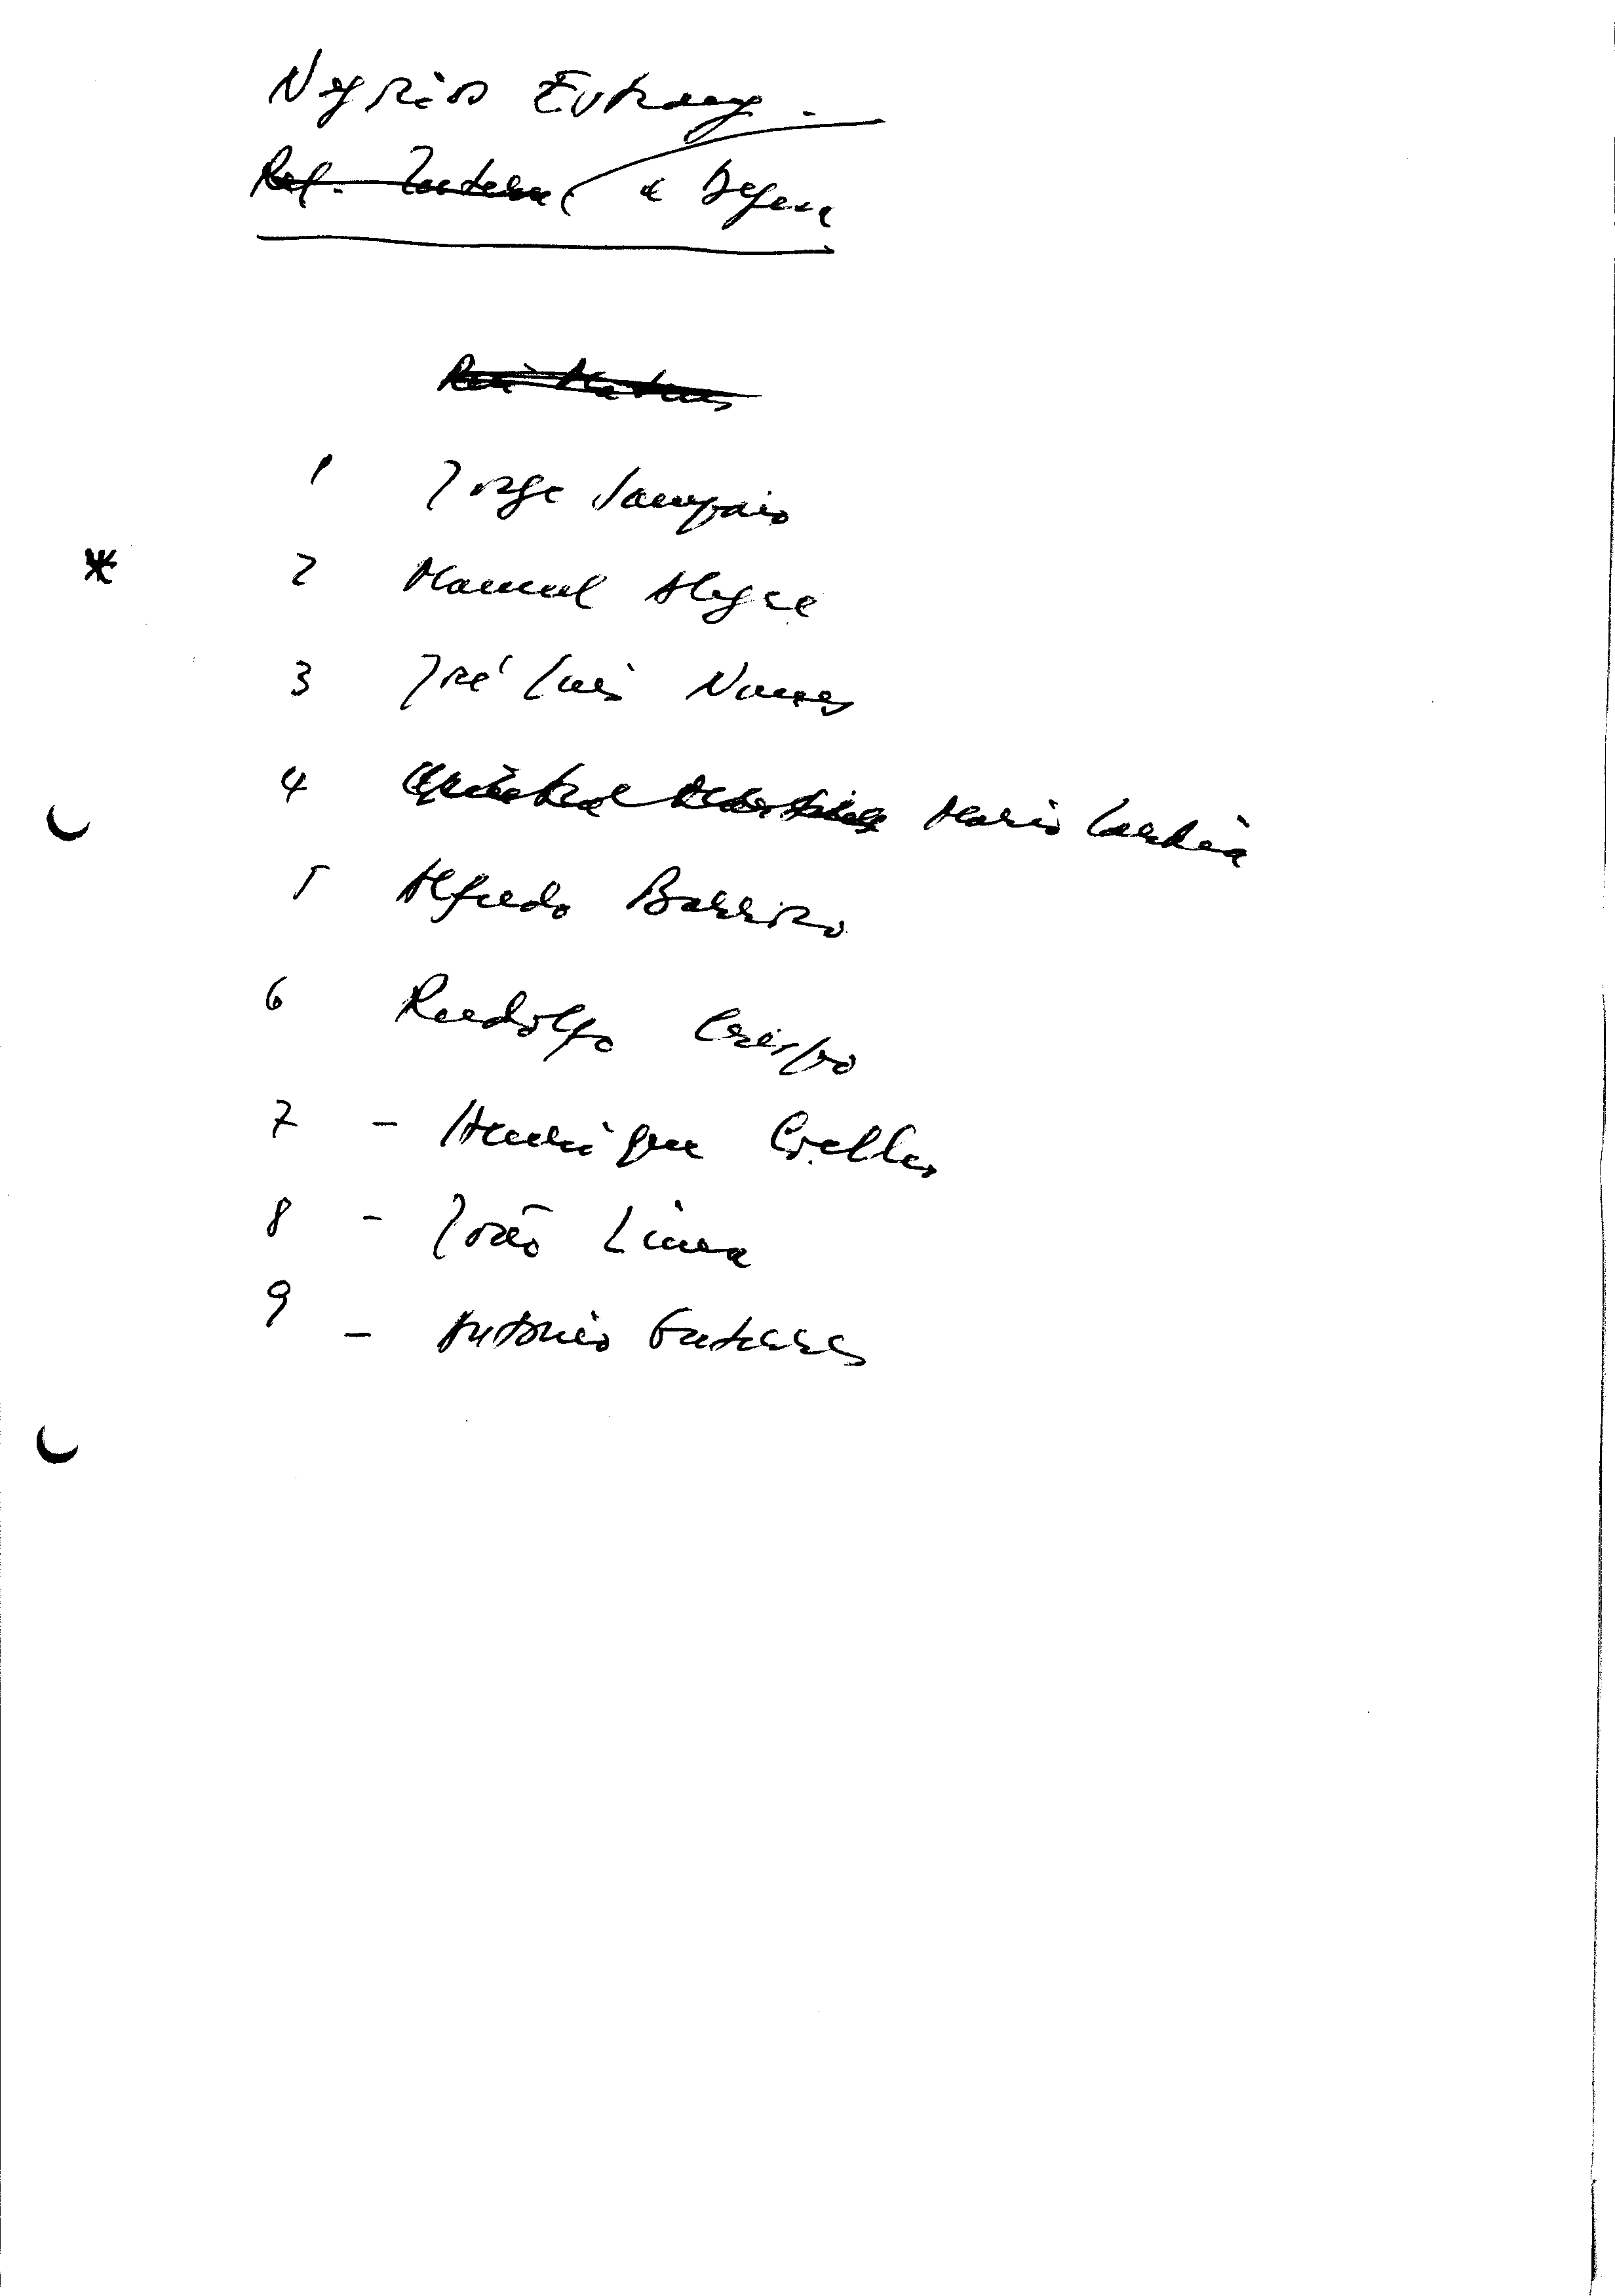 Negócios Estrang.
e Defesa
1 Jorge Sampaio
* 2 Manuel Alegre
3 José Luis Nunes
4 Mario Cardia
5 Alfredo Barroso
6 Rudolfo Crespo
7 - Henrique Coelho
8 - João Lima
9 - António Guterres